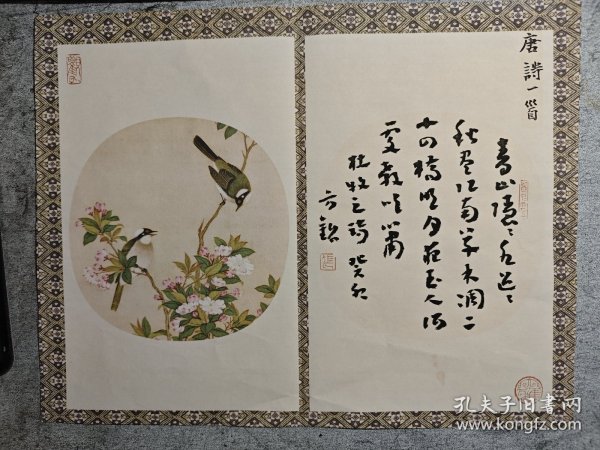 唐詩一首
青山隱〻水迢〻
秋盡江南草木凋二
十四橋明月夜玉人何
處教吹簫
杜牧之詩
孔夫子旧书网
www.kongfz.com